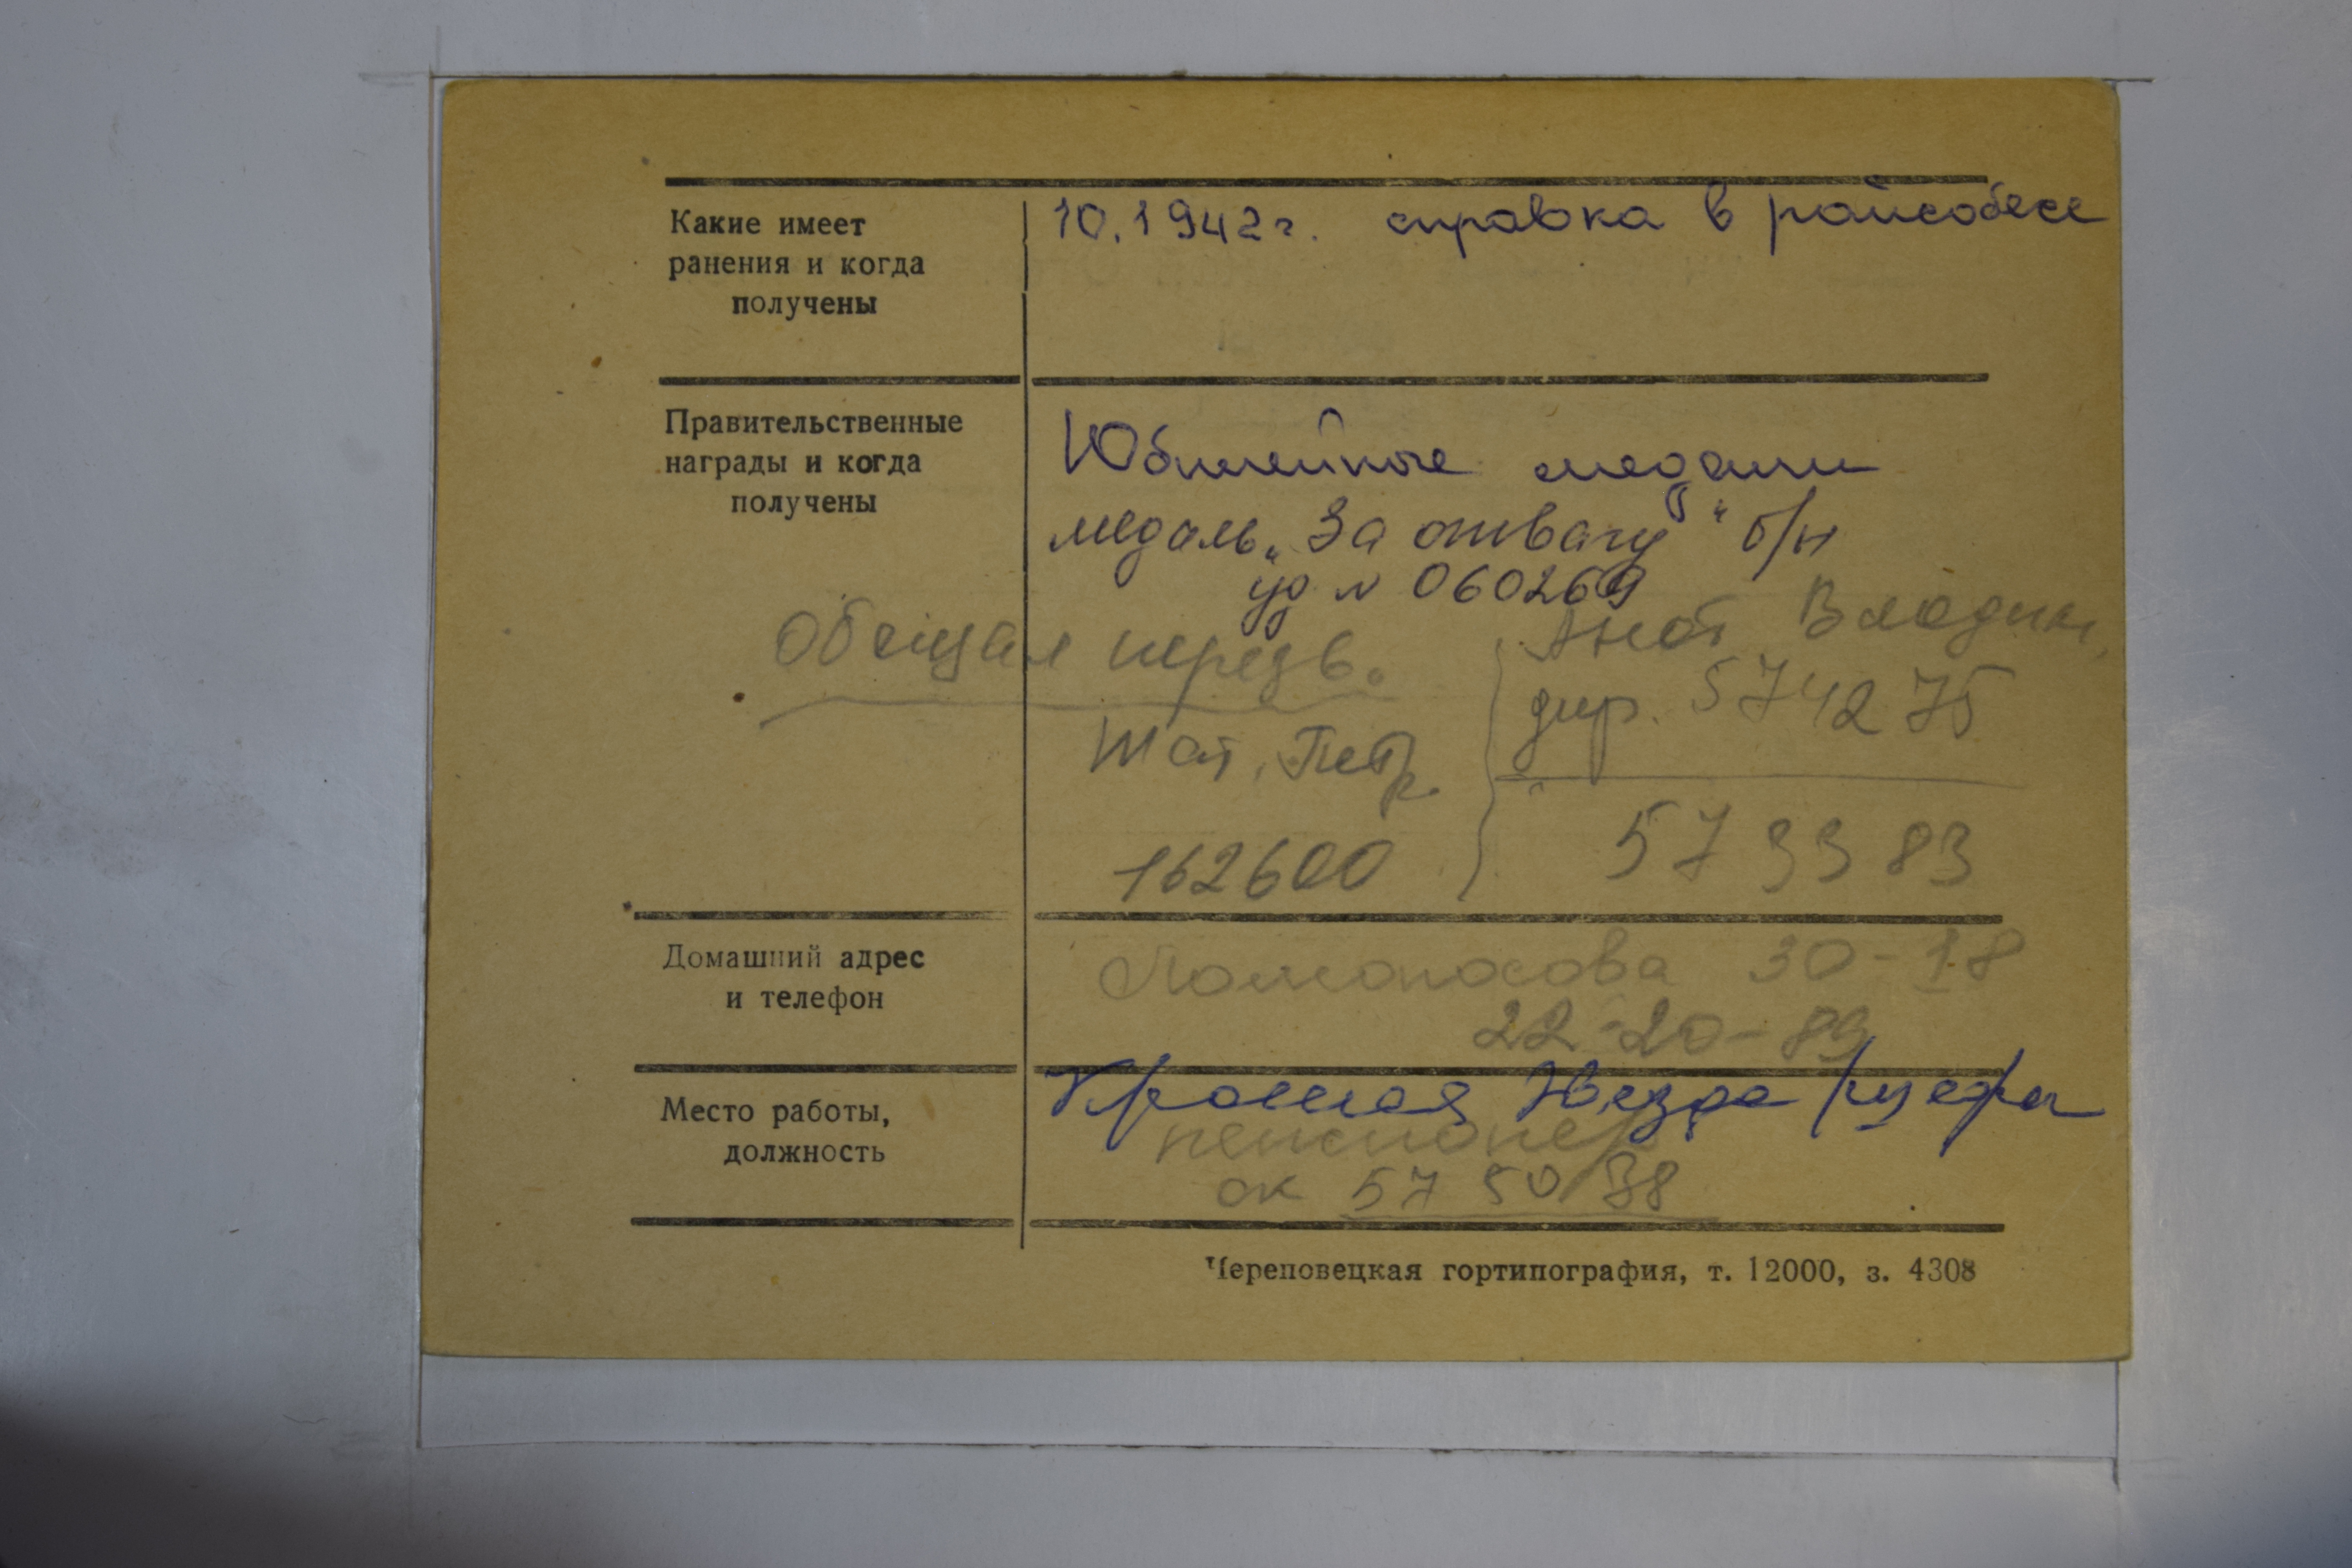 Какие имеет
ранения и когда
получены
10.1942г. справка в райсобесе
Правительственные
награды и когда
получены
Юбилейные медали
медаль „За отвагу" б/н
уд N 060269
Обещал перезв.
Анат Владим.
дир. 574275
Тат. Петр.
162600
573383
Домашний адрес
и телефон
Ломоносова 30-18
22-20-89
Место работы,
должность
Красная Звезда
пенсионер
ок 57 50 38
Череповецкая гортипография, т. 12000, з. 4308